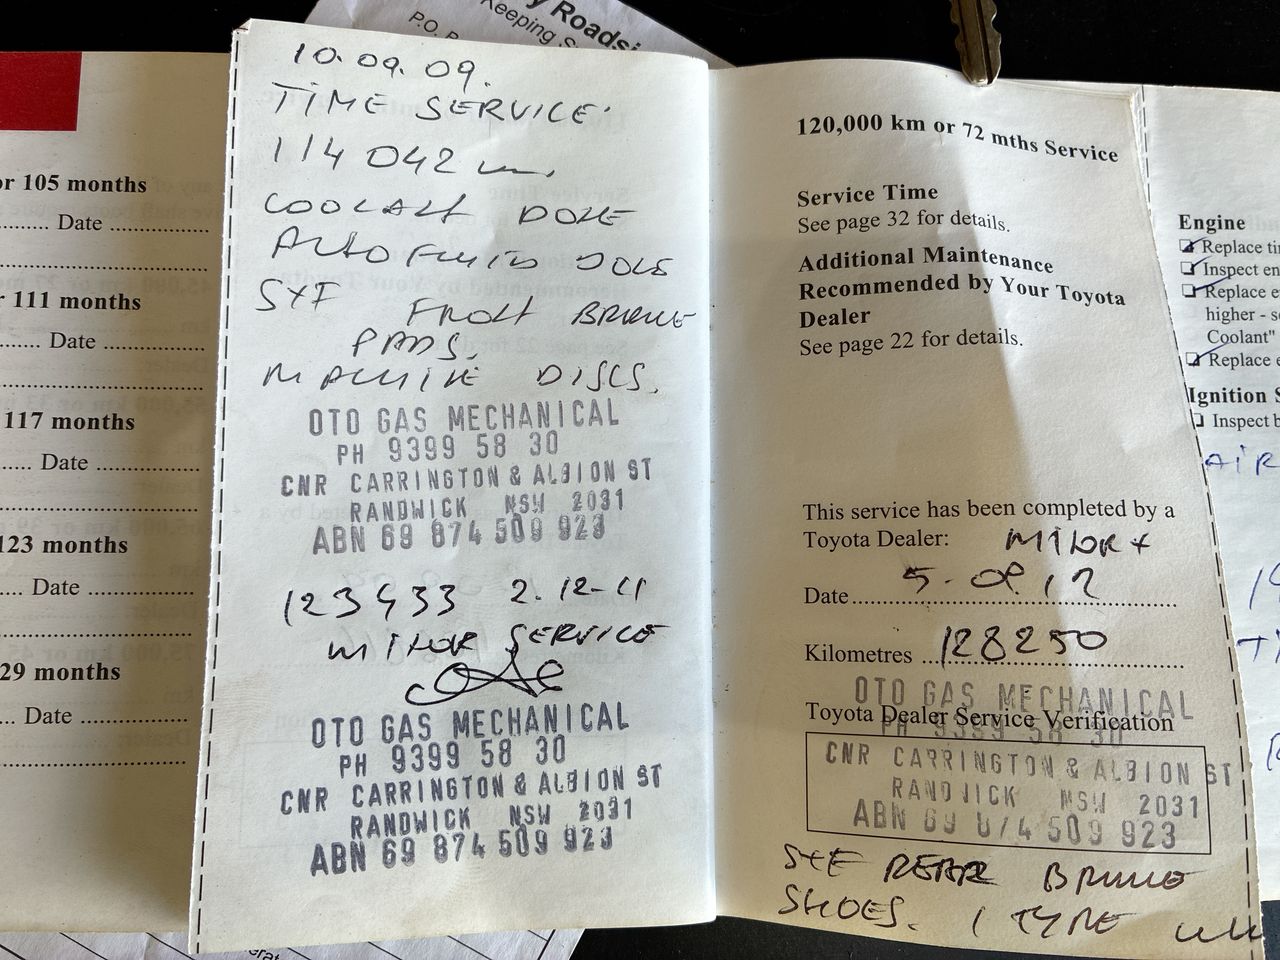 y Roadsi
Keeping S
P.O. B
or 105 months
Date
r 111 months
Date
117 months
Date
123 months
Date
29 months
Date
10.09.09.
TIME SERVICE
114 042
COOLANT DONE
AUTO FLUIDS DONE
S+F FRONT BRAKE
PADS.
MACHINE DISCS.
OTO GAS MECHANICAL
PH 9399 58 30
CNR CARRINGTON & ALBION ST
RANDWICK NSW 2031
ABN 69 874 509 923
123433 2.12-11
MINOR SERVICE
OTO GAS MECHANICAL
PH 9399 58 30
CNR CARRINGTON & ALBION ST
RANDWICK NSW 2031
ABN 69 874 509 923
120,000 km or 72 mths Service
Service Time
See page 32 for details.
Additional Maintenance
Recommended by Your Toyota
Dealer
See page 22 for details.
This service has been completed by a
Toyota Dealer: MINOR +
Date 5.08.12
Kilometres 128250
OTO GAS MECHANICAL
Toyota Dealer Service Verification
PH 9399 58 30
CNR CARRINGTON & ALBION ST
RANDWICK NSW 2031
ABN 69 874 509 923
S+F REAR BRAKE
SHOES. 1 TYRE
Engine
Replace ti
Inspect en
Replace e
higher - s
Coolant"
Replace e
Ignition S
Inspect b
AIR